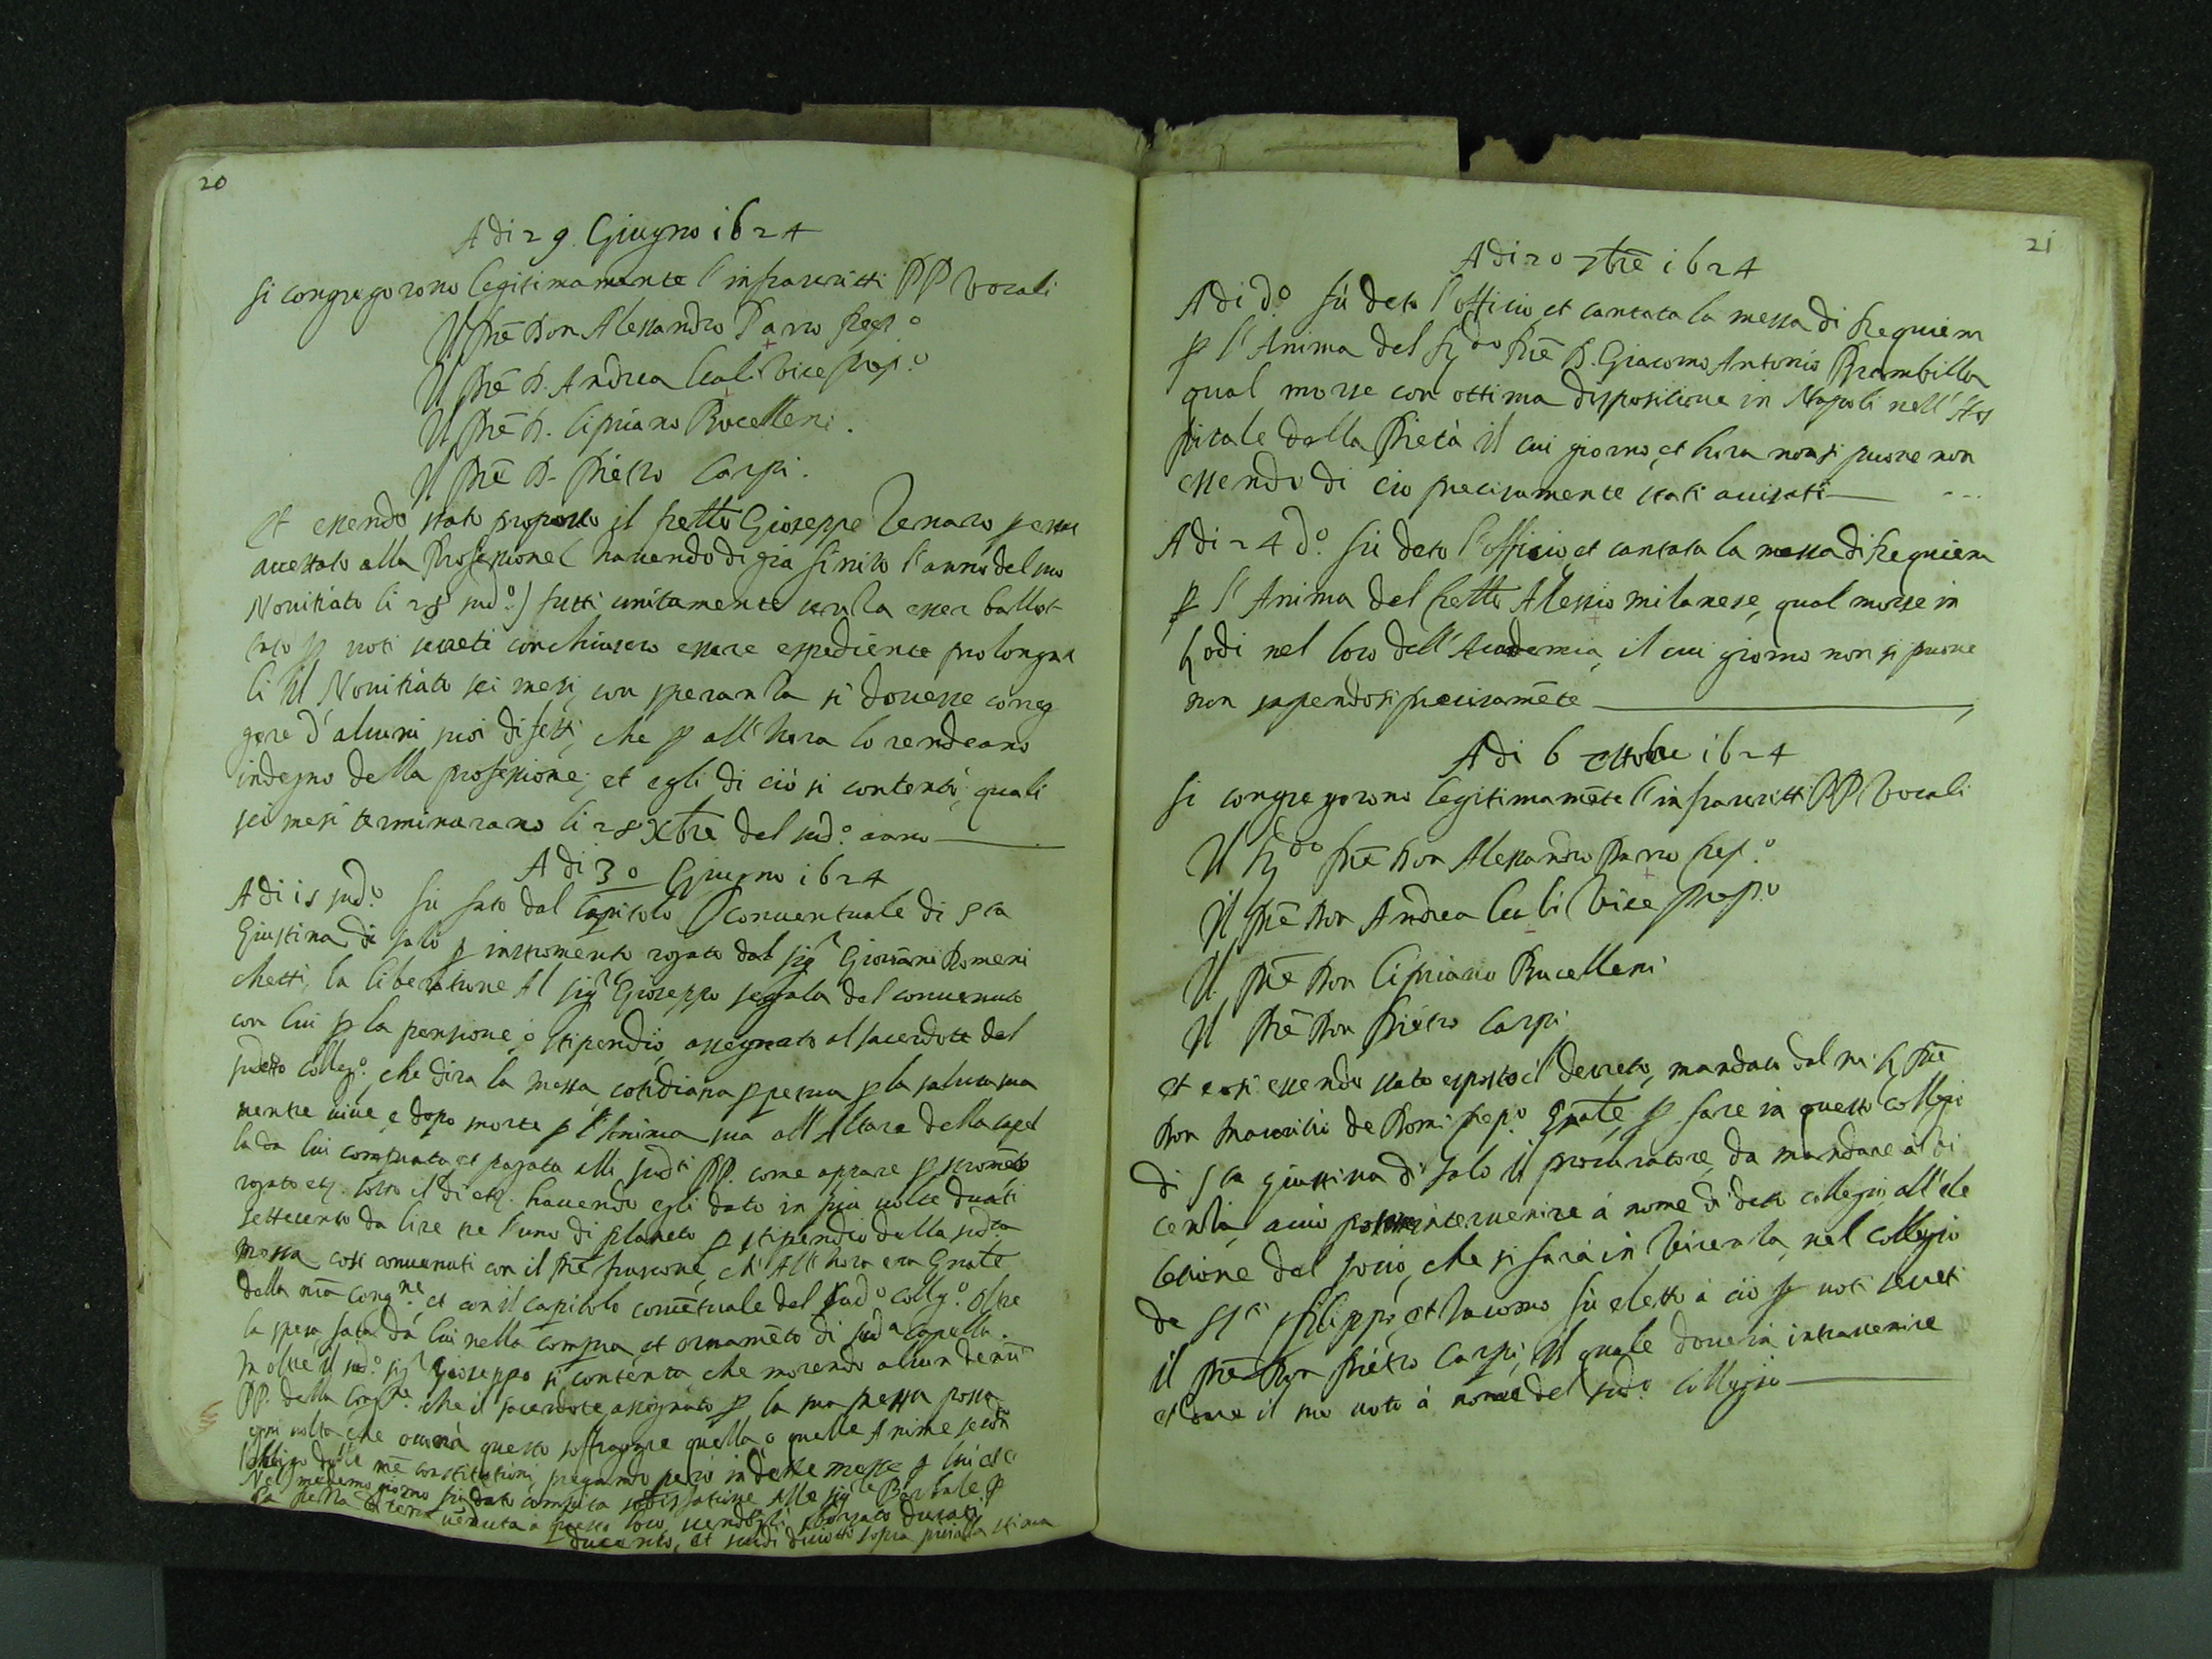 20
A di 29. Giugno 1624
Si congregorono legitimamente l'infrascritti PP Vocali
Il Prē Don Alessandro Parro Prep.º
Il Prē D. Andrea Leali Vice Prep.º
Il Prē D. Cipriano Bucelleni.
Il Prē D. Pietro Carpi.
Et essendo stato proposto il frello Gioseppe
accettato alla Professione (havendo di già finito l'anno del suo
Novitiato li 28 sud.º) tutti unitamente senza esser ballot-
tato p voti secreti conchiusero essere espediente prolongar
li il Novitiato sei mesi, con speranza si dovesse correg
gere d'alcuni suoi difetti, che p all'hora lo rendeano
indegno della professione, et egli di ciò si contentò, quali
sei mesi terminarano li 28 Xbre del sud.º anno
A di 30 Giugno 1624
A di 15 sud.º fu fato dal Capitolo Conventuale di Sta
Giustina di Salò p instromento rogato dal sigr Giovāni Domeni
chetti, la liberatione Al sigr Gioseppo Segala del convenuto
con lui p la pensione, ò stipendio, assegnato al sacerdote del
sudetto colleg.º, che dira la messa cotidiana perpetua p la salute sua
mentre vive, e dopo morte p l'Anima sua all'Altare della capel
la da lui comprata et pagata alli sudti PP. come appare p stromēto
rogato etc. sotto il dì etc. havendo egli dato in più volte ducati
settecento da lire ne l'uno di planeto p stipendio della sudta
messa cosi convenuti con il Prē Frascone, ch'All'hora era Gnāle
della nrā Congne. et con il capitolo convētuale del sudº collgº. oltre
la spesa fata dà lui nella compra et ornamēto di suda Capella.
In oltre il sud.º sigr Gioseppo si contenta che morendo alcun de nrī
PP. della Congne. che il sacerdote assignato p la sua messa possa
ogni volta che ocorrà questo soffragare quella, o quelle Anime secōdo
l'obligo delle nrē constitutioni, pregando però in dette messe p lui etc
Nel medemo giorno fu dato compita sodisfatione alle sigre Bartale p
la pezza di terra venduta a questo loco, sendogli sborsato ducati
ducento, et scudi diciotto sopra più alla stima
21
A di 20 7brē 1624
A di d.º fù deto l'officio, et cantata la messa di Requiem
p l'Anima del Rdo Prē D. Giacomo Antonio Brambilla
qual morse con ottima dispositione in Napoli nell'Hos
pitale della Pietà il cui giorno, et hora non si puone non
essendo di ciò precisamente stati avisati
A di 24 d.º fù deto l'officio, et cantata la messa di Requiem
p l'Anima del frello Alessio milanese, qual morse in
Lodi nel loco dell'Academia, il cui giorno non si puone
non sapendosi precisamēte
A di 6 ottobre 1624
Si congregorono legitimamēte l'infrascritti PP Vocali
Il Rdo Prē Don Alessandro Parro Prep.º
Il Prē Don Andrea Leali Vice Prep.º
Il Prē Don Cipriano Bucelleni
Il Prē Don Pietro Carpi
et così essendo stato esposto il decreto, mandato dal m R Prē
Don Mauritio de Domi Prep.º Gnāle, p fare in questo Collegio
di Sta Giustina di Salò il procuratore, da mandare à Vi
cenza, acciò potesse intervenire à nome di deto collegio, all'ele
tione del socio, che si farà in Vicenza, nel collegio
de Sti Filippo, et Iacomo fù eletto à ciò p voti secreti
il Prē Don Pietro Carpi, Il quale doverà intravenire
et dare il suo voto à nome del sud.º Collegio